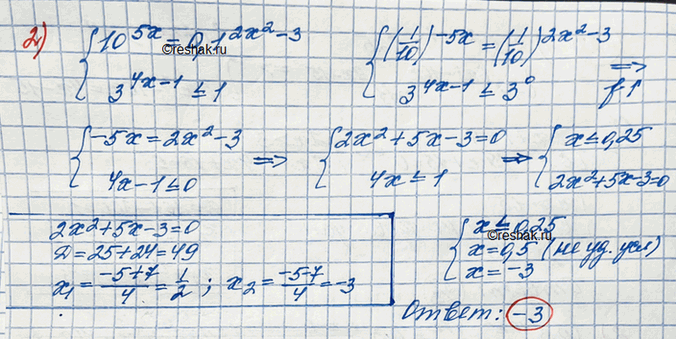 2) { 10^{5x} = 0,1^{2x²-3}
3^{4x-1} ≤ 1
{ (1/10)^{-5x} = (1/10)^{2x²-3}
3^{4x-1} ≤ 3^0 ⇒
f↑
{ -5x = 2x²-3
4x-1≤0
⇒ { 2x²+5x-3=0
4x ≤ 1
⇒ { x ≤ 0,25
2x²+5x-3=0
2x²+5x-3=0
D=25+24=49
x₁ = (-5+7)/4 = 1/2 ; x₂ = (-5-7)/4 = -3
{ x ≤ 0,25
x = 0,5 (не уд. усл)
x = -3
Ответ: -3
©reshak.ru
©reshak.ru